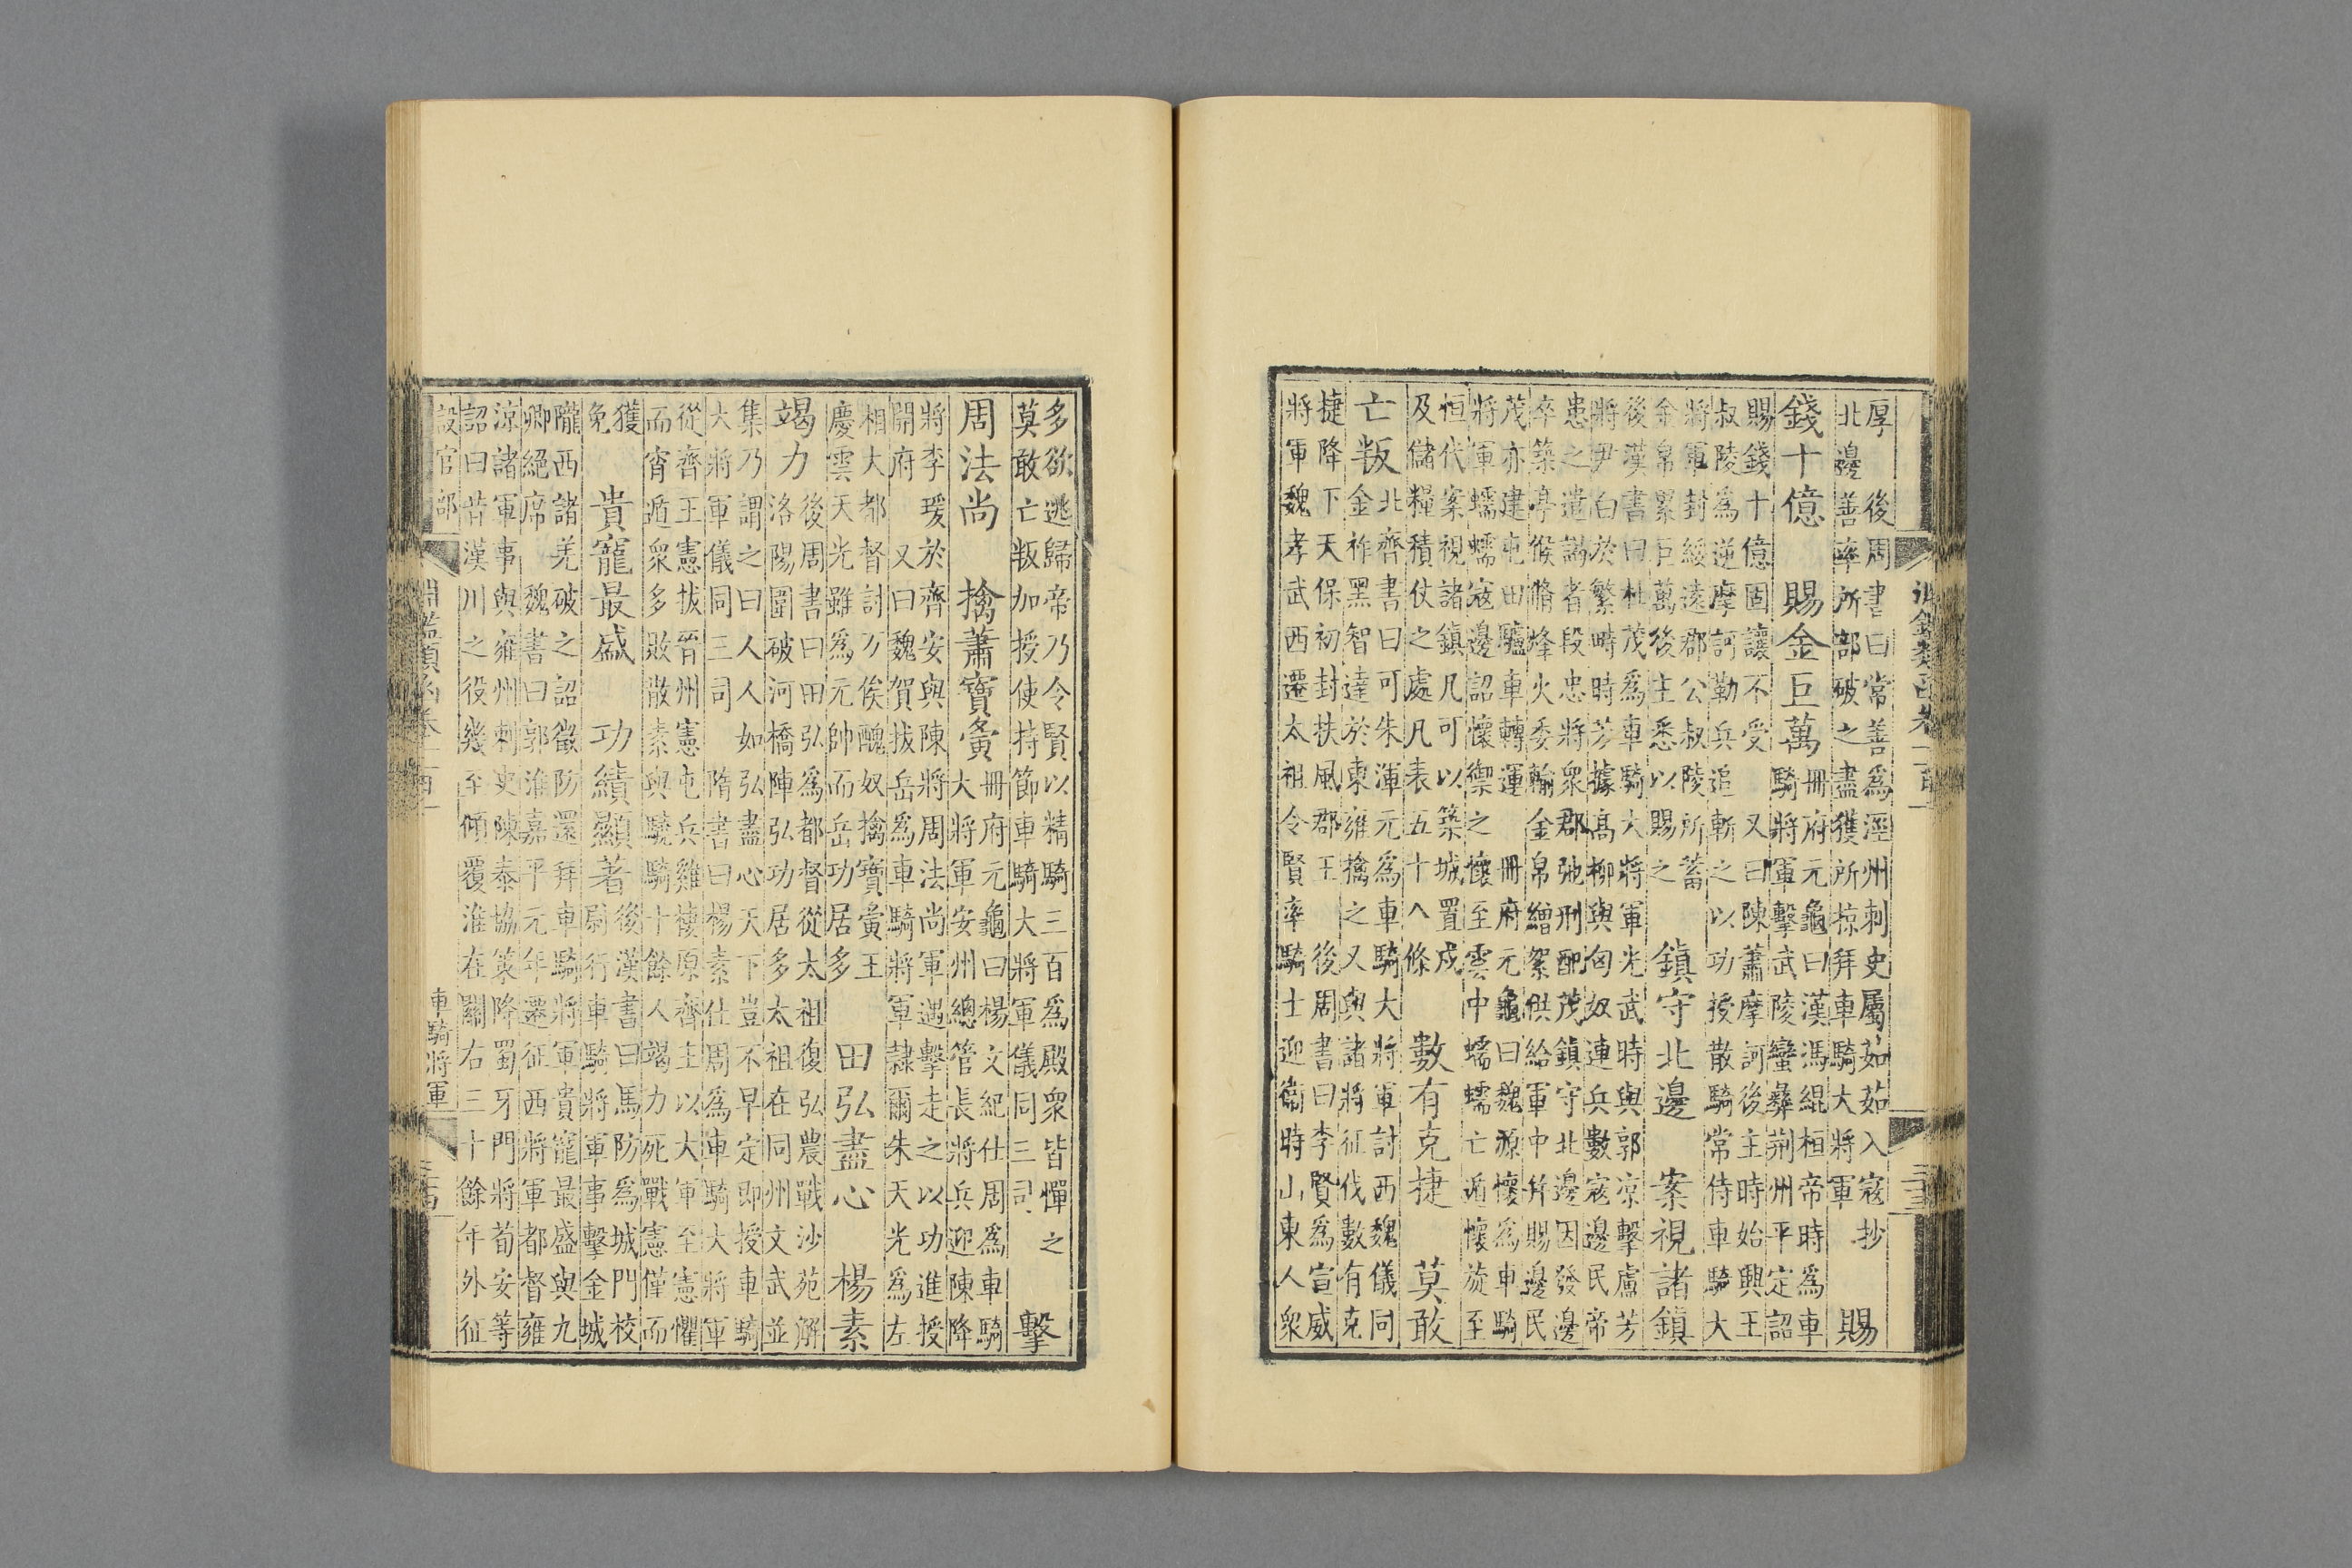 淵鑑類函卷一百
厚　後周書曰常善爲涇州刺史屬茹茹入寇抄
北邊善率所部破之盡獲所掠拜車騎大將軍
賜
錢十億　賜金巨萬
冊府元龜曰漢馮緄桓帝時爲車
騎將軍擊武陵蠻彝荆州平定詔
賜錢十億固讓不受　又曰陳蕭摩訶後主時始興王
叔陵爲逆摩訶勒兵追斬之以功授散騎常侍車騎大
將軍封綏遠郡公叔陵所蓄
金帛累巨萬後主悉以賜之
鎮守北邊　案視諸鎮
後漢書曰杜茂爲車騎大將軍光武時與郭凉擊盧芳
將尹由於繁畤時芳據高柳與匈奴連兵數寇邊民帝
患之遣謁者段忠將衆郡弛刑配茂鎮守北邊因發邊
卒築亭候脩烽火委輸金帛繒絮供給軍中并賜邊民
茂亦建屯田驢車轉運　冊府元龜曰魏源懷爲車騎
將軍蠕蠕寇邊詔懷禦之懷至雲中蠕蠕亡遁懷旋至
恒代案視諸鎮凡可以築城置戍
及儲糧積仗之處凡表五十八條
數有克捷　莫敢
亡叛
北齊書曰可朱渾元爲車騎大將軍討西魏儀同
金祚黑智達於東雍擒之又與諸將征伐數有克
捷降下天保初封扶風郡王　後周書曰李賢爲宣威
將軍魏孝武西遷太祖令賢率騎士迎衞時山東人衆
多欲逃歸帝乃令賢以精騎三百爲殿衆皆憚之
莫敢亡叛加授使持節車騎大將軍儀同三司
擊
周法尚　擒蕭寶夤
冊府元龜曰楊文紀仕周爲車騎
大將軍安州總管長將兵迎陳降
將李瑗於齊安與陳將周法尚軍遇擊走之以功進授
開府　又曰魏賀拔岳爲車騎將軍隸爾朱天光爲左
相大都督討万俟醜奴擒寶夤王
慶雲天光雖爲元帥而岳功居多
田弘盡心　楊素
竭力
後周書曰田弘爲都督從太祖復弘農戰沙苑解
洛陽圍破河橋陣弘功居多太祖在同州文武並
集乃謂之曰人人如弘盡心天下豈不早定即授車騎
大將軍儀同三司　隋書曰楊素仕周爲車騎大將軍
從齊王憲拔晉州憲屯兵雞棲原齊主以大軍至憲懼
而宵遁衆多敗散素與驍騎十餘人竭力死戰憲僅而
獲
免
貴寵最盛　功績顯著
後漢書曰馬防爲城門校
尉行車騎將軍事擊金城
隴西諸羌破之詔徵防還拜車騎將軍貴寵最盛與九
卿絕席　魏書曰郭淮嘉平元年遷征西將軍都督雍
涼諸軍事與雍州刺史陳泰協策降蜀牙門將荀安等
詔曰昔漢川之役幾至傾覆淮在關右三十餘年外征
設官部
淵鑑類函卷一百
車騎將軍